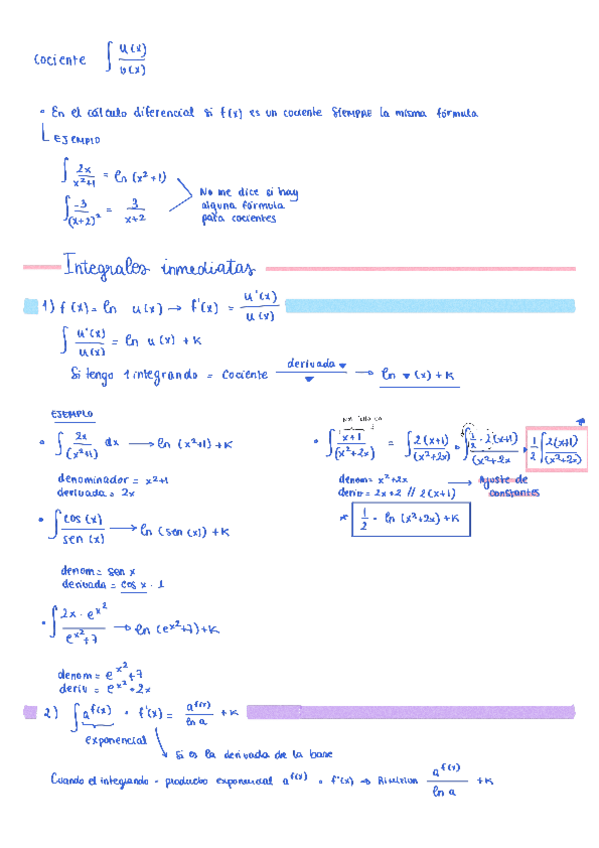 Cociente ∫ u(x)/v(x)
• En el cálculo diferencial si f(x) es un cociente SIEMPRE la misma fórmula
EJEMPLO
∫ 2x/x²+1 = ln (x²+1)
∫ -3/(x+2)² = 3/x+2
No me dice si hay
alguna fórmula
para cocientes
Integrales inmediatas
1) f(x) = ln u(x) → f'(x) = u'(x)/u(x)
∫ u'(x)/u(x) = ln u(x) + K
Si tengo 1 integrando = cociente derivada ▾/▾ → ln ▾(x) + K
EJEMPLO
• ∫ 2x/(x²+1) dx → ln (x²+1) + K
denominador = x²+1
derivada = 2x
• ∫ cos (x)/sen (x) → ln (sen (x)) + K
denom = sen x
derivada = cos x · 1
• ∫ 2x · e^x²/e^x²+7 → ln (e^x²+7) + K
denom = e^x²+7
deriv = e^x² · 2x
• ∫ x+1/(x²+2x) = ∫ 2(x+1)/(x²+2x) ∫ 1/2 · 2(x+1)/(x²+2x 1/2 ∫ 2(x+1)/(x²+2x)
denom = x²+2x → Ajuste de
deriv = 2x+2 // 2(x+1) constantes
* 1/2 · ln (x²+2x) + K
2) ∫ a^f(x) · f'(x) = a^f(x)/ln a + K
exponencial
Si es la derivada de la base
Cuando el integrando = producto exponencial a^f(x) · f'(x) ⇒ a^f(x)/ln a + K